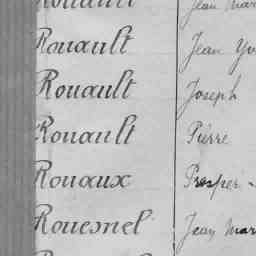 Rouault Jean Mar
Rouault Jean Yv
Rouault Joseph
Rouault Pierre
Rouaux Prosper -
Rouesnel Jean Mar